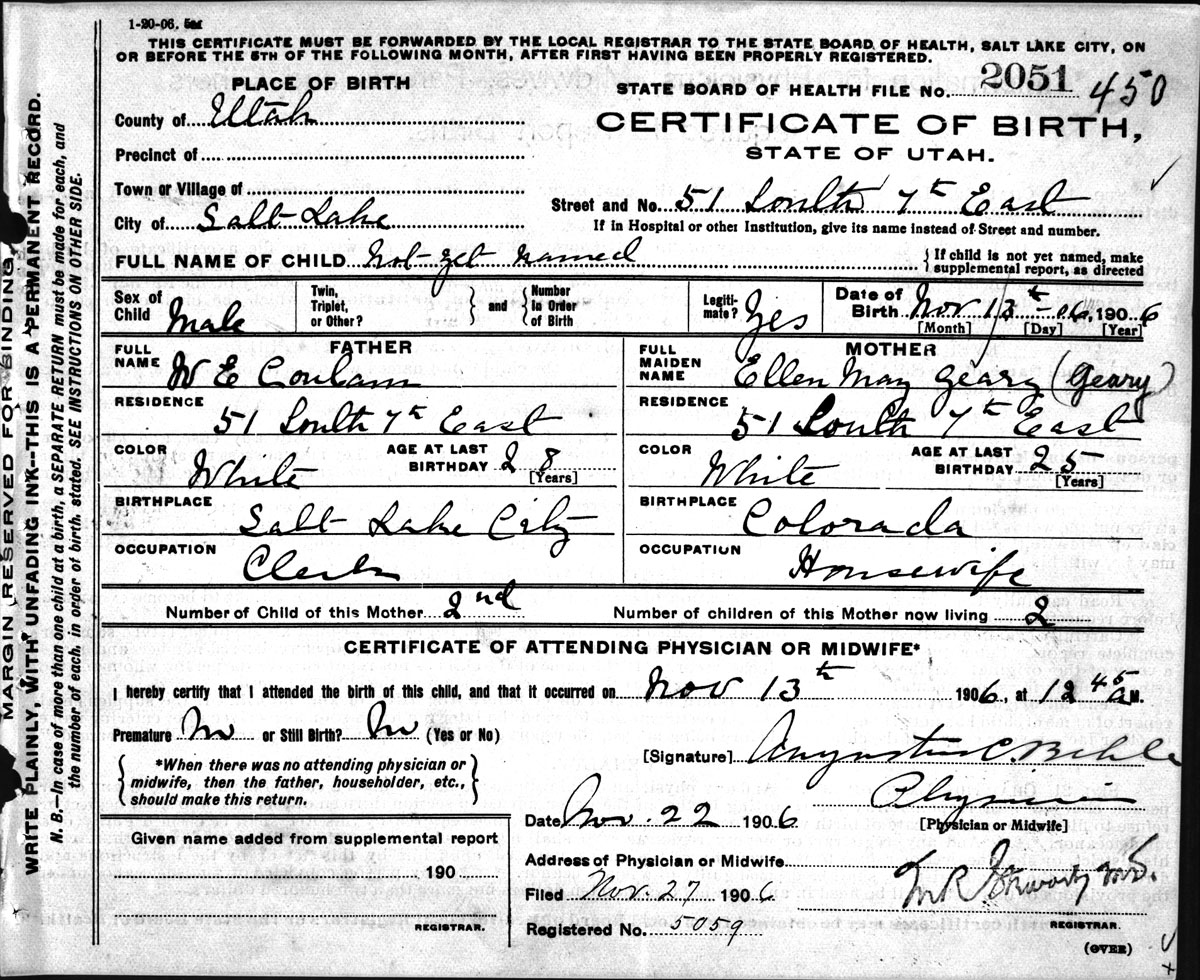 1-20-06. 5m
THIS CERTIFICATE MUST BE FORWARDED BY THE LOCAL REGISTRAR TO THE STATE BOARD OF HEALTH, SALT LAKE CITY, ON
OR BEFORE THE 5TH OF THE FOLLOWING MONTH, AFTER FIRST HAVING BEEN PROPERLY REGISTERED.
PLACE OF BIRTH
STATE BOARD OF HEALTH FILE No. 2051 450
County of Utah
CERTIFICATE OF BIRTH,
STATE OF UTAH.
Precinct of
Town or Village of
Street and No. 51 South 7th East
City of Salt Lake
If in Hospital or other Institution, give its name instead of Street and number.
FULL NAME OF CHILD Not yet named
{ If child is not yet named, make
supplemental report, as directed
Sex of Child Male
Twin, Triplet, or Other? } and { Number in Order of Birth
Legiti-mate? Yes
Date of Birth Nov 13th - 06, 1906
[Month] [Day] [Year]
FATHER
FULL NAME W E Coulam
RESIDENCE
51 South 7th East
COLOR White
AGE AT LAST BIRTHDAY 28
[Years]
BIRTHPLACE
Salt Lake City
OCCUPATION
Clerk
MOTHER
FULL MAIDEN NAME Ellen May Geary (Geary)
RESIDENCE
51 South 7th East
COLOR White
AGE AT LAST BIRTHDAY 25
[Years]
BIRTHPLACE
Colorado
OCCUPATION
Housewife
Number of Child of this Mother 2nd
Number of children of this Mother now living 2
CERTIFICATE OF ATTENDING PHYSICIAN OR MIDWIFE*
I hereby certify that I attended the birth of this child, and that it occurred on Nov 13th 1906, at 12 45 a M.
Premature No or Still Birth? No (Yes or No)
{ *When there was no attending physician or
midwife, then the father, householder, etc.,
should make this return. }
[Signature] Augustus C. Behle
Physician
[Physician or Midwife]
Date Nov. 22 1906
Given name added from supplemental report
190
REGISTRAR.
Address of Physician or Midwife
Filed Nov. 27 1906
M R Stewart M.D.
Registered No. 5059
REGISTRAR.
(OVER)
MARGIN RESERVED FOR BINDING.
WRITE PLAINLY, WITH UNFADING INK--THIS IS A PERMANENT RECORD.
N. B.—In case of more than one child at a birth, a SEPARATE RETURN must be made for each, and
the number of each, in order of birth, stated. SEE INSTRUCTIONS ON OTHER SIDE.